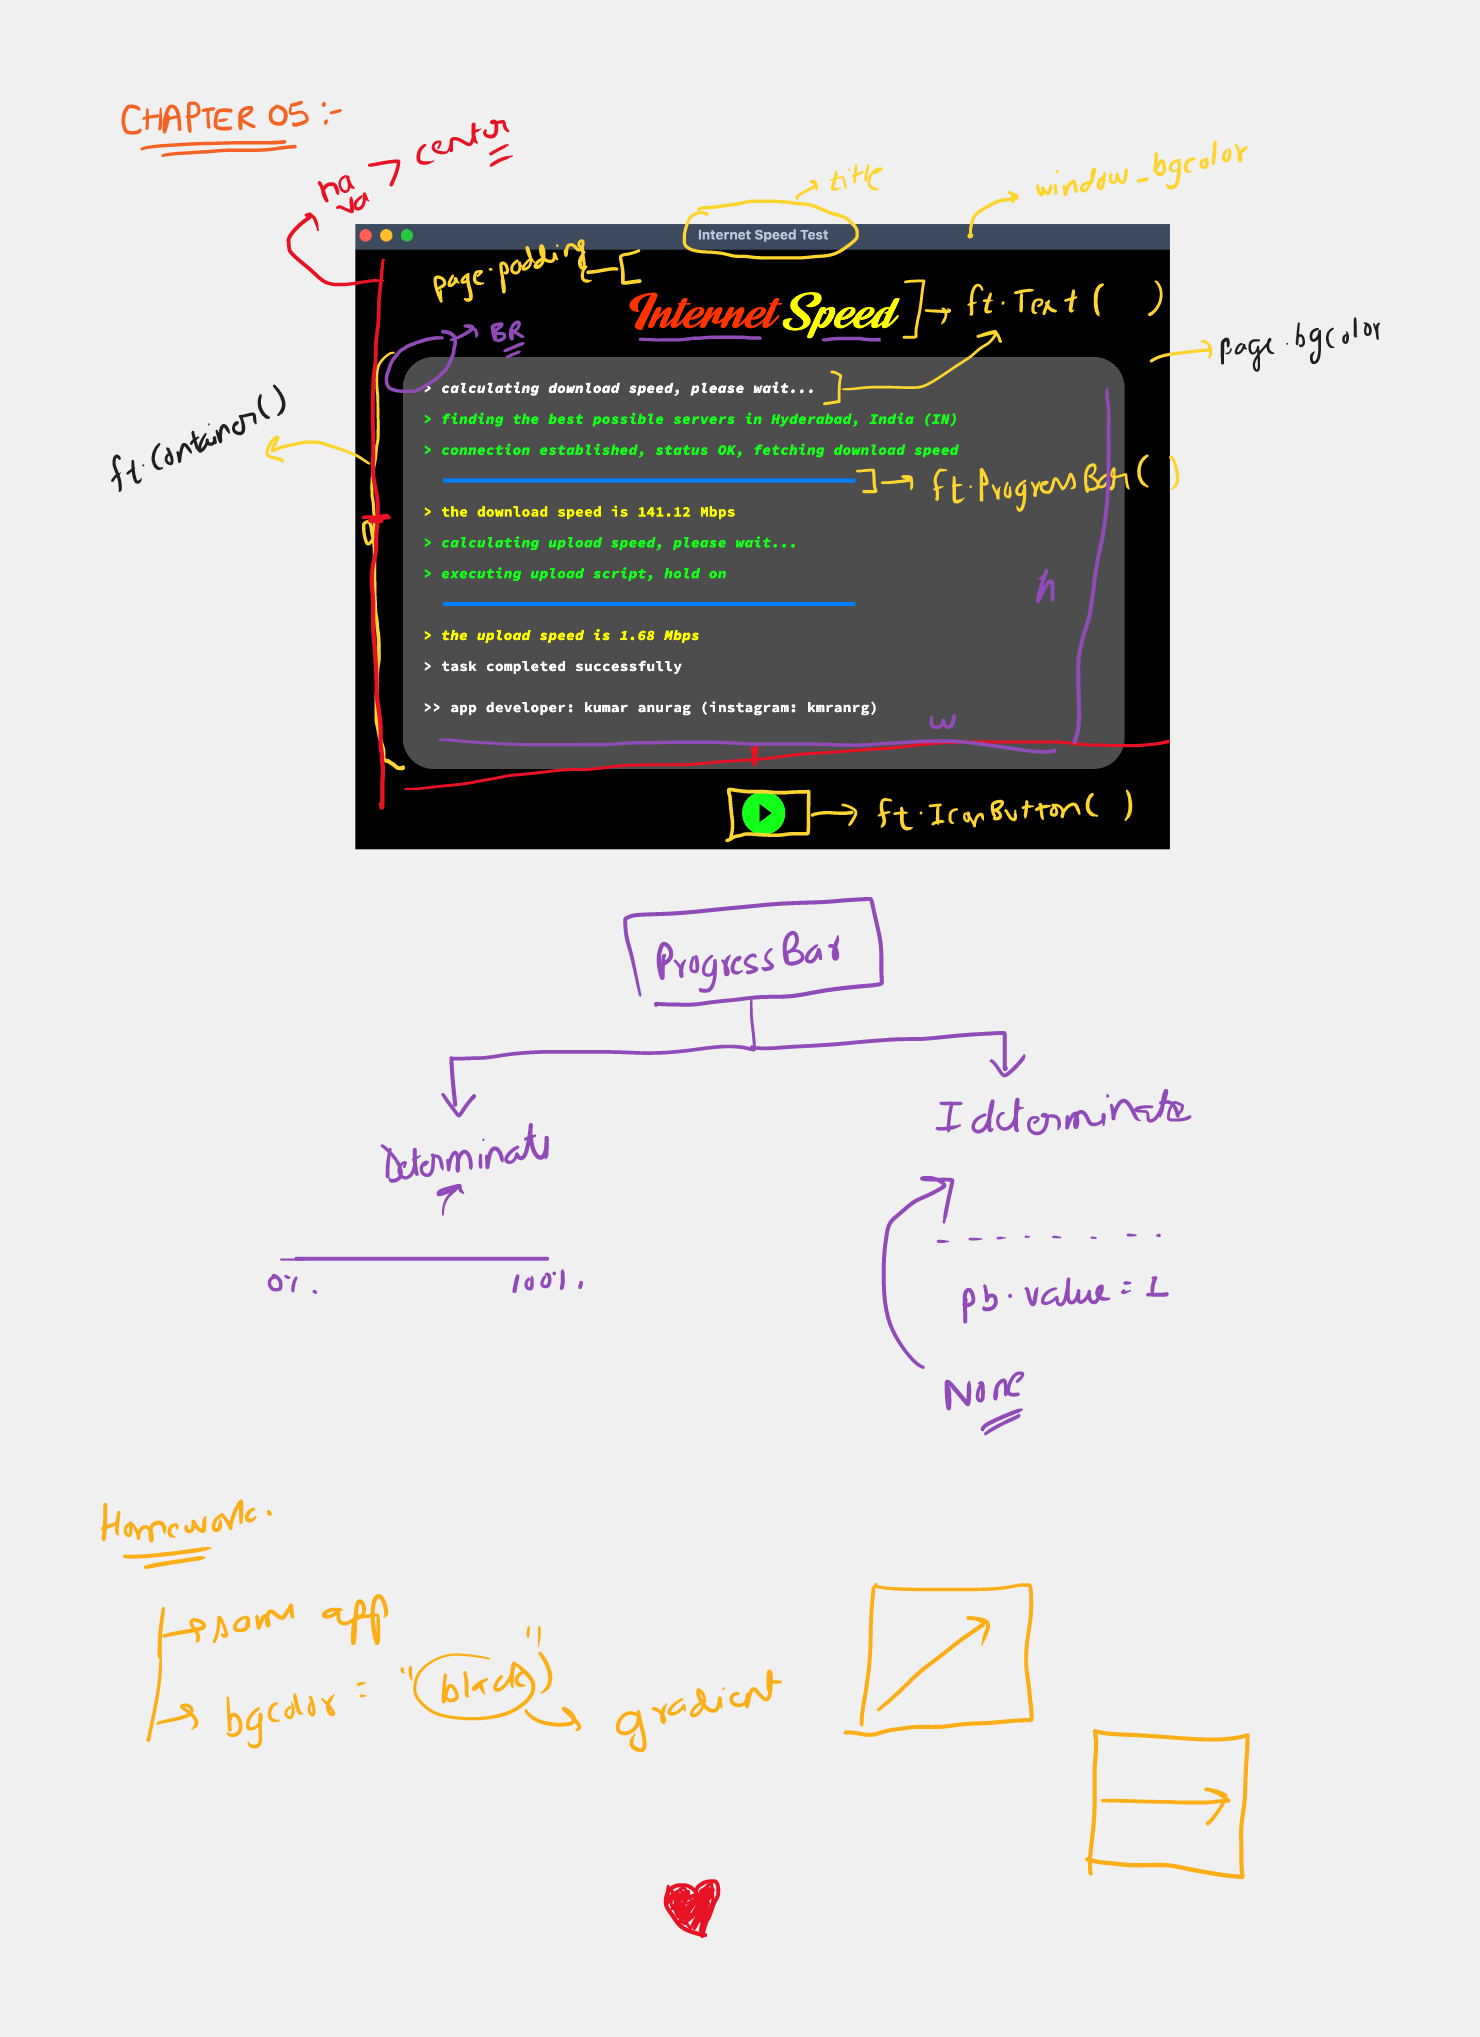 CHAPTER 05 :-
ha
va
> center
title
window_bgcolor
Internet Speed Test
page.padding
Internet Speed
ft.Text ( )
BR
page.bgcolor
ft.Container()
> calculating download speed, please wait...
> finding the best possible servers in Hyderabad, India (IN)
> connection established, status OK, fetching download speed
ft.ProgressBar( )
> the download speed is 141.12 Mbps
> calculating upload speed, please wait...
> executing upload script, hold on
h
> the upload speed is 1.68 Mbps
> task completed successfully
>> app developer: kumar anurag (instagram: kmranrg)
w
ft.IconButton( )
ProgressBar
Determinate
Ideterminate
0%.
100%.
pb.value = 1
None
Homework.
same app
bgcolor = "black"
gradient